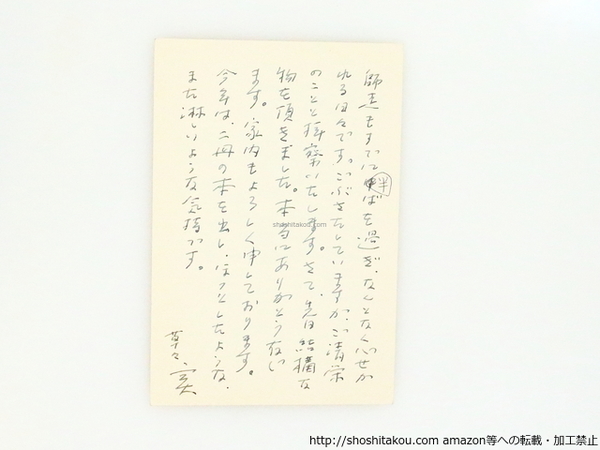 師走もすでに半ばを過ぎ、なんとなく心せか
れる日々です。ごぶさたしていますが、ご清栄
のことと拝察いたします。さて、先日結構な
物を頂きました。本当にありがとうござい
ます。家内もよろしく申しております。
今年は、二冊の本を出し、ほっとしたような、
また淋しいような気持です。
草々
shoshitakou.com
http://shoshitakou.com amazon等への転載・加工禁止